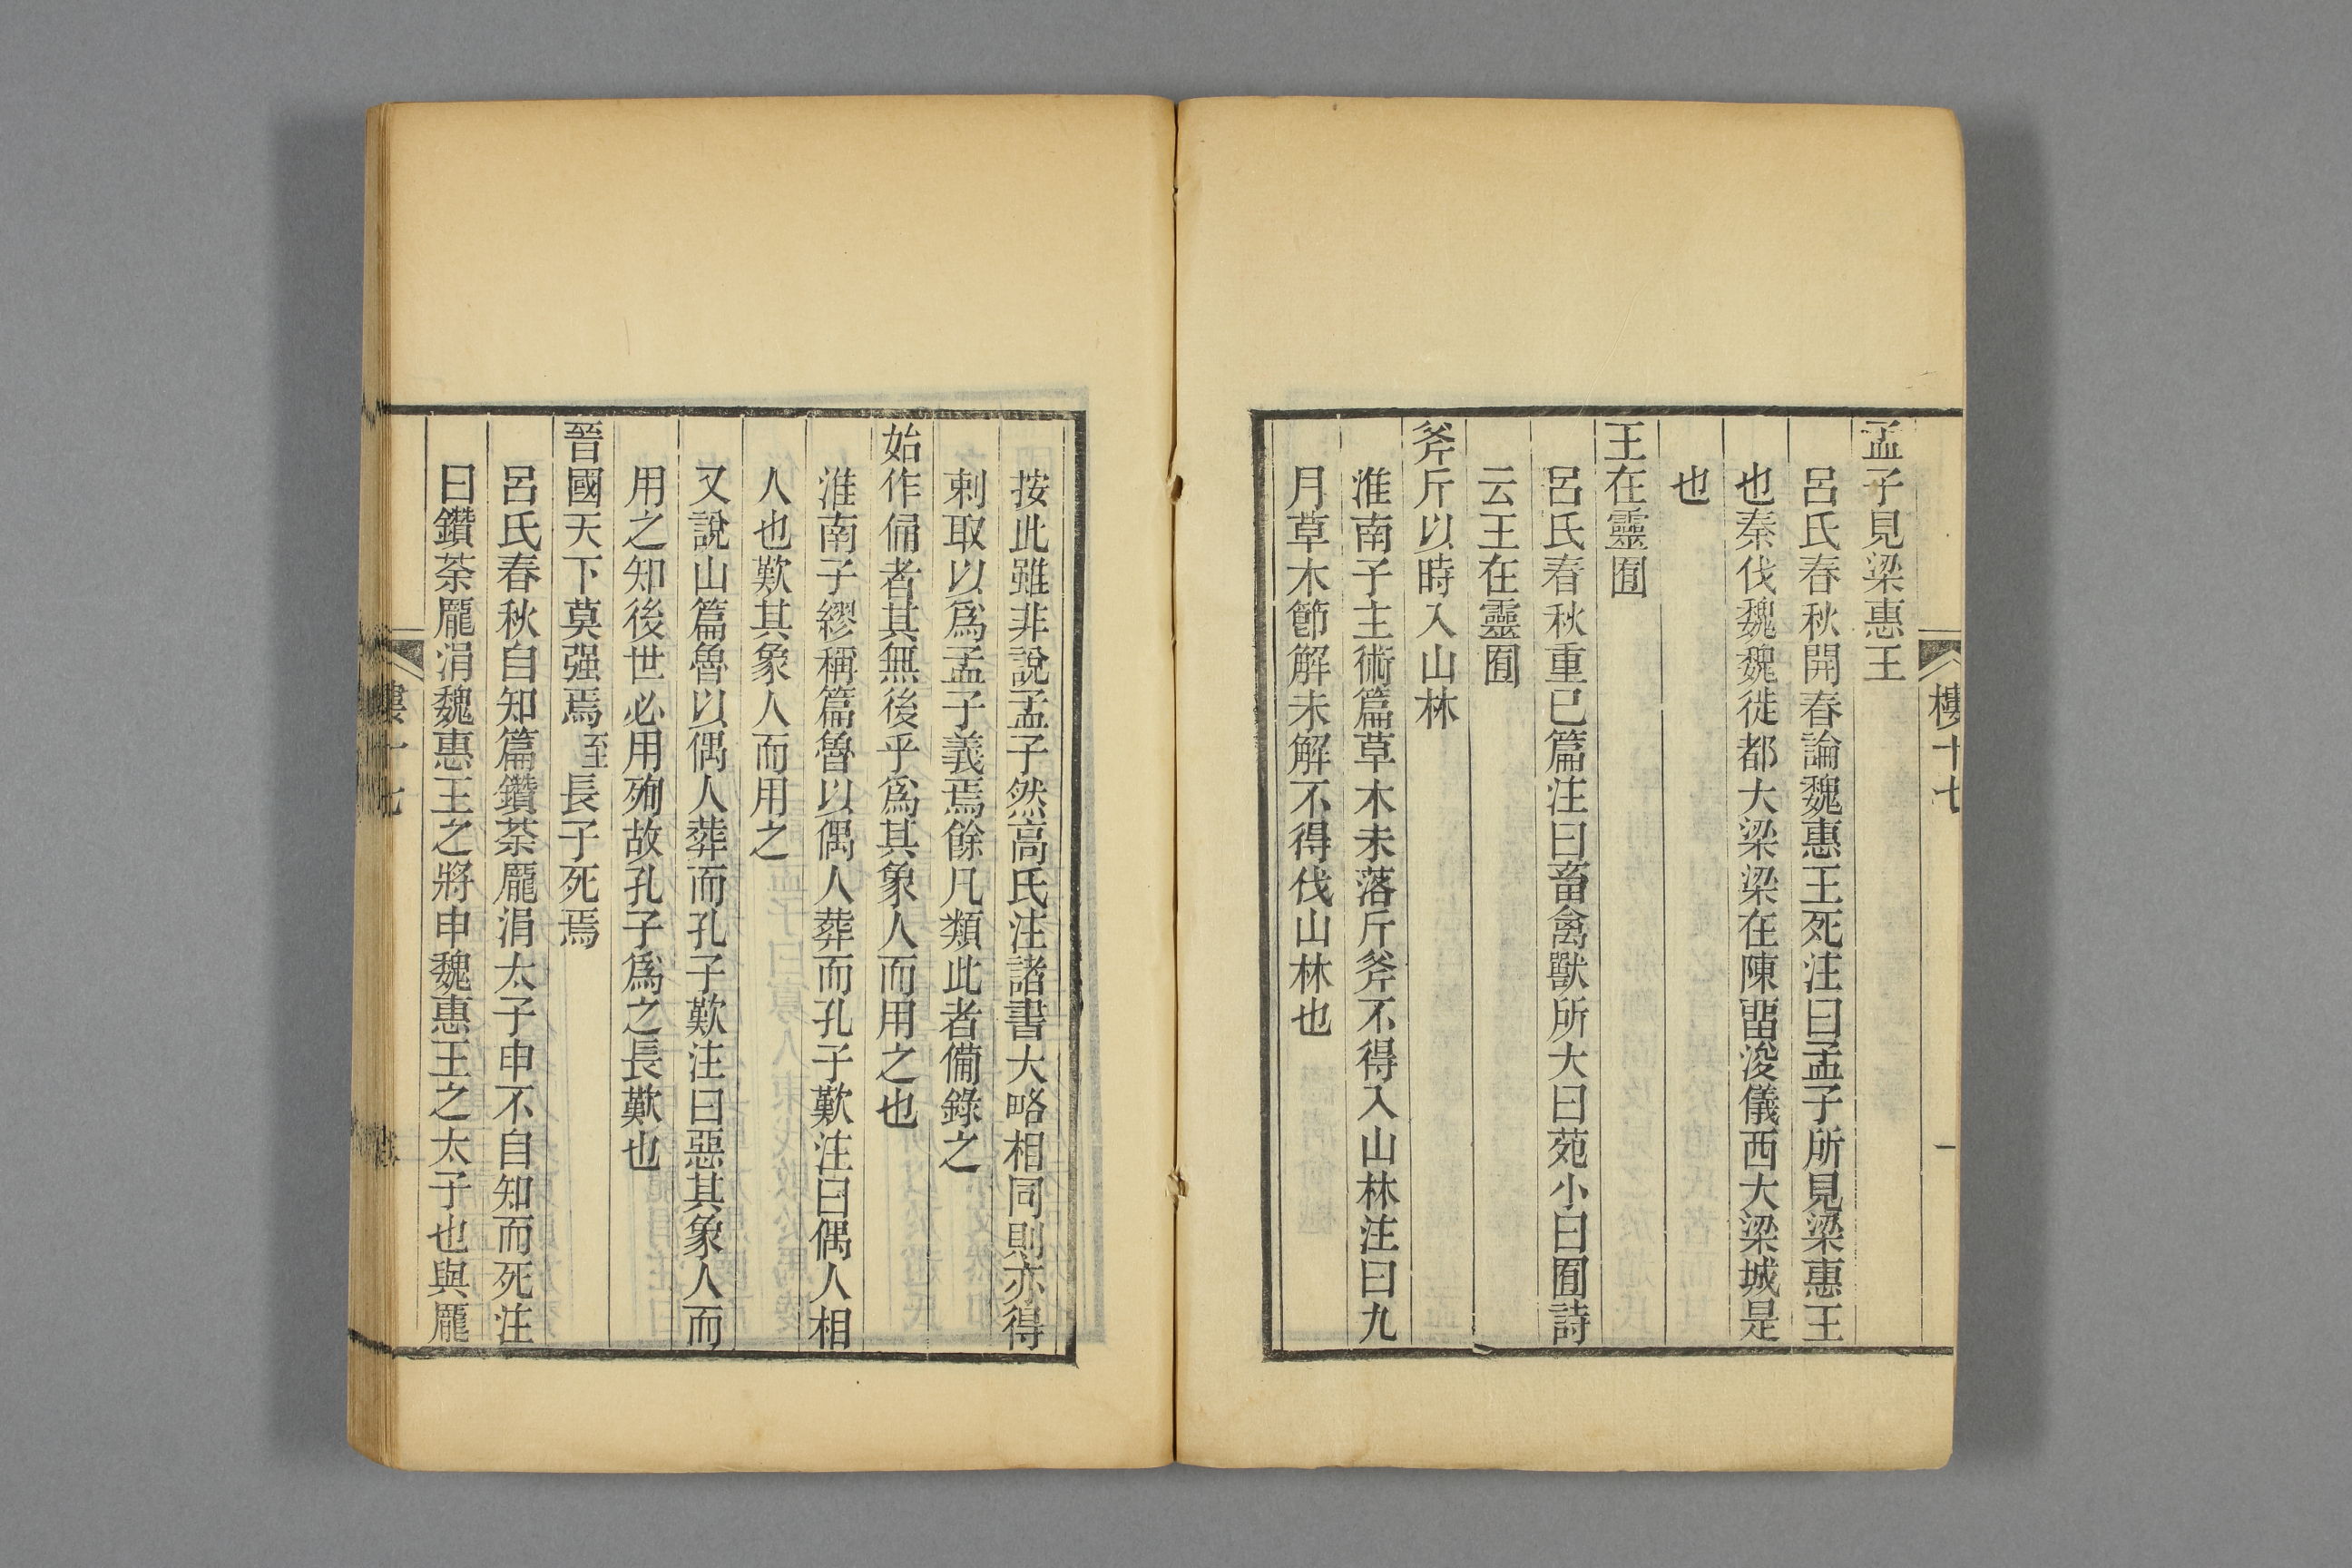 樓十七
一
孟子見梁惠王
呂氏春秋開春論魏惠王死注曰孟子所見梁惠王
也秦伐魏魏徙都大梁梁在陳畱浚儀西大梁城是
也
王在靈囿
呂氏春秋重已篇注曰畜禽獸所大曰苑小曰囿詩
云王在靈囿
斧斤以時入山林
淮南子主術篇草木未落斤斧不得入山林注曰九
月草木節解未解不得伐山林也
按此雖非說孟子然高氏注諸書大略相同則亦得
剌取以爲孟子義焉餘凡類此者備錄之
始作俑者其無後乎爲其象人而用之也
淮南子繆稱篇魯以偶人葬而孔子歎注曰偶人相
人也歎其象人而用之
又說山篇魯以偶人葬而孔子歎注曰惡其象人而
用之知後世必用殉故孔子爲之長歎也
晉國天下莫强焉至長子死焉
呂氏春秋自知篇鑽荼龎涓太子申不自知而死注
曰鑽荼龎涓魏惠王之將申魏惠王之太子也與龎
樓十七